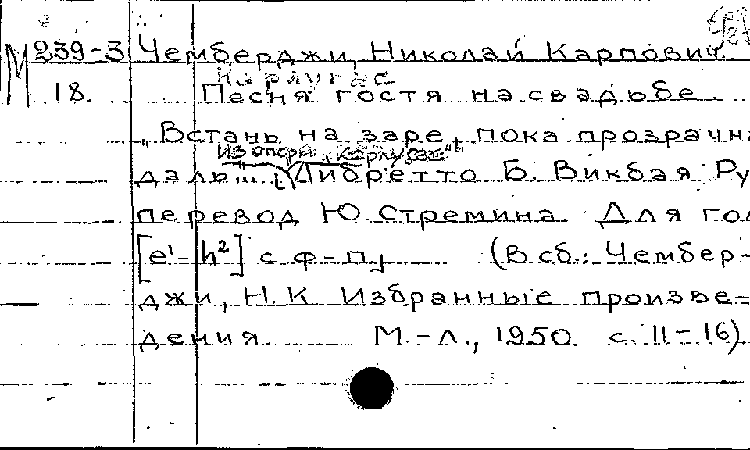 М 239-3 Чемберджи, Николай Карпович
Карлугас
18. Песня гостя на свадьбе
„Встань на заре, пока прозрачна
из оперы „Карлугас"
даль"... Либретто Б. Бикбая Ру
перевод Ю Стремина. Для гол
[e¹-h²] с ф-п. (В сб.: Чембер-
джи, Н.К Избранные произве-
дения М.-Л., 1950 с. 11-16)